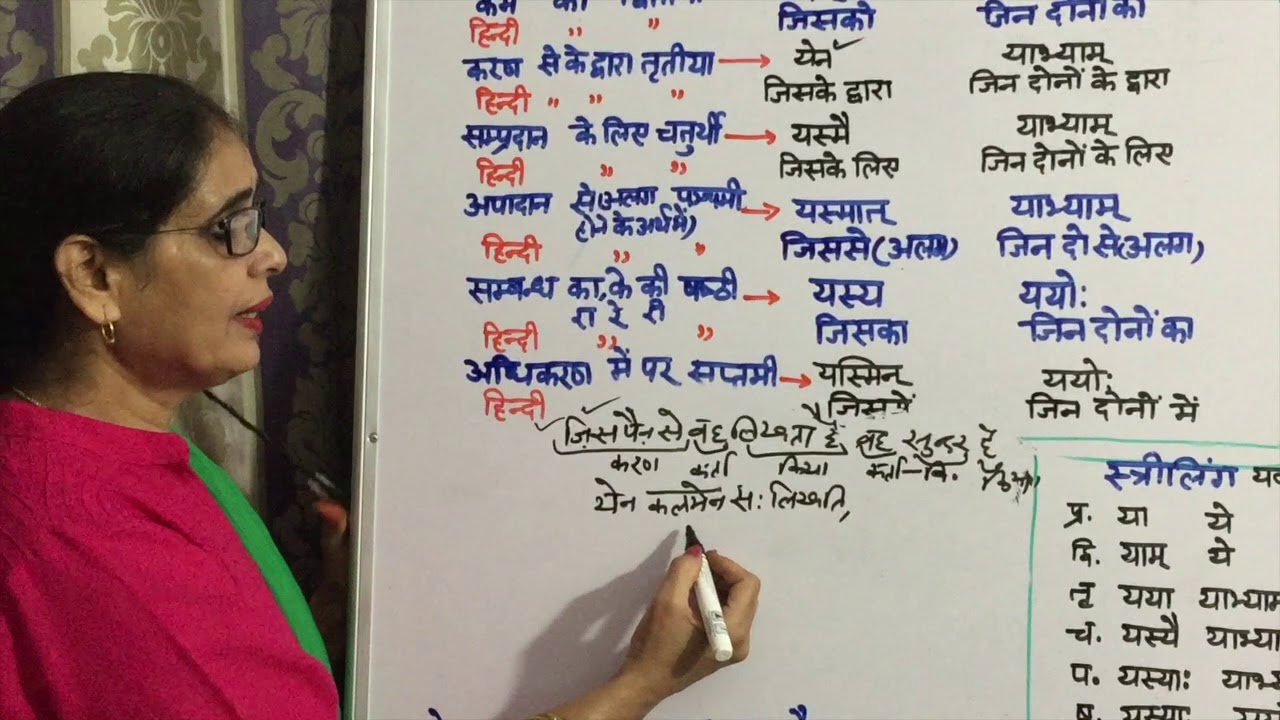 जिसको जिन दोनों को
हिन्दी " "
करण से के द्वारा तृतीया → येन ✓ याभ्याम्
हिन्दी " " " जिसके द्वारा जिन दोनों के द्वारा
सम्प्रदान के लिए चतुर्थी → यस्मै याभ्याम्
हिन्दी " " जिसके लिए जिन दोनों के लिए
अपादान से (अलग पञ्चमी → यस्मात् याभ्याम्
होने के अर्थ में)
हिन्दी " " जिससे (अलग) जिन दो से (अलग)
सम्बन्ध का, के की षष्ठी → यस्य ययो:
रा रे री
हिन्दी " " जिसका जिन दोनों का
अधिकरण में पर सप्तमी → यस्मिन् ययो:
हिन्दी जिसमें जिन दोनों में
जिस पैन से वह लिखता है वह सुन्दर है
करण कर्ता क्रिया कर्ता-वि.
येन कलमेन स: लिखति,
स्त्रीलिंग
प्र. या ये
द्वि. याम् ये
तृ यया याभ्याम
च. यस्यै याभ्या
प. यस्या: याभ्
ष. यस्या: